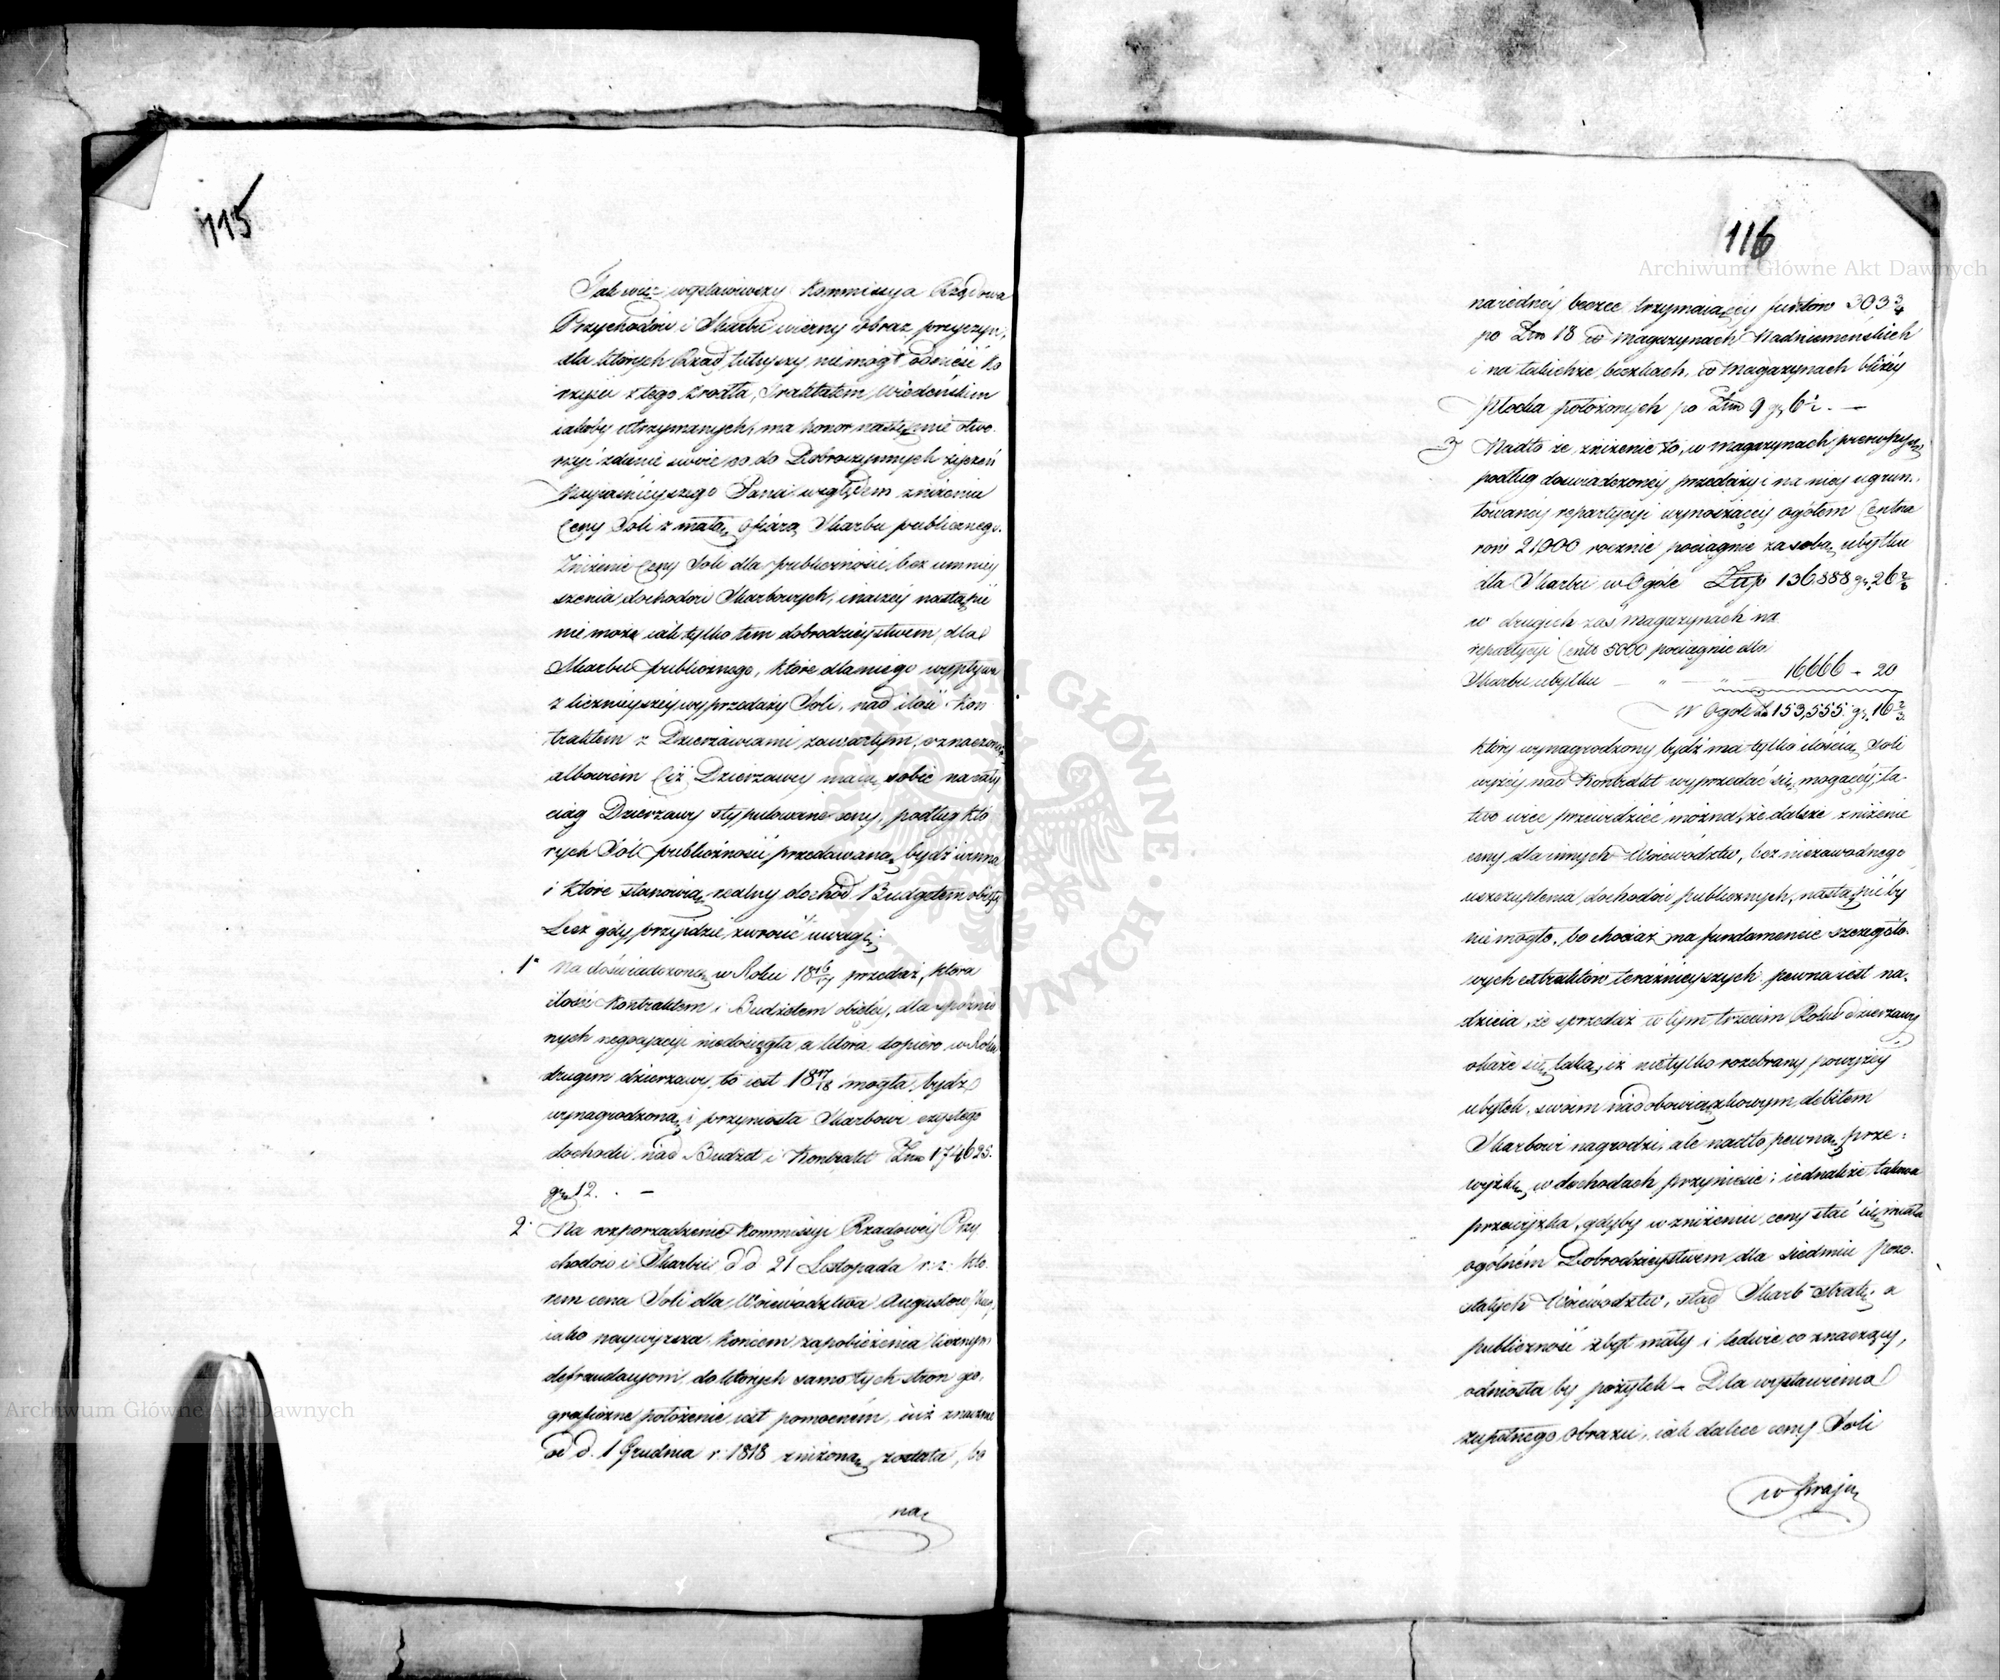 115
Jak więc wystawiwszy Kommissya Rządowa
Przychodów i Skarbu wierny obraz przyczyn,
dla których Rząd tuteyszy nie mógł odnieść ko
rzyści z tego źrodła, Traktatem Wiedeńskim
iakoby otrzymanych, ma honor następnie otwo.
rzyć zdanie swoie co do Dobroczynnych życzeń
Nayiaśnieyszego Pana względem zniżenia
Ceny Soli z małą ofiarą Skarbu publicznego.
Zniżenie Ceny Soli dla publiczności, bez umniey
szenia dochodów Skarbowych, inaczey nastąpić
nie może iak tylko tem dobrodzieystwem dla
Skarbu publicznego, które dla niego wypływa
z licznieyszey wyprzedaży Soli, nad ilość Kon
traktem z Dzierżawcami zawartym, oznaczoną
albowiem Ciż Dzierżawcy maią sobie na cały
ciąg Dzierżawy stypulowane ceny, podług któ
rych Sól publiczności przedawaną bydź winna
i które stanowią realny dochód Budgetem obięty
Lecz gdy przyidzie zwrócić uwagę:
1° Na doświadczoną w Roku 18 16/17 przedaż, która
ilości Kontraktem i Budżetem obiętey, dla spóźnio
nych negocyacyi niedosięgła, a która dopiero w Roku
drugim dzierżawy, to iest 18 17/18 mogła bydź
wynagrodzoną i przyniosła Skarbowi czystego
dochodu nad Budżet i Kontrakt Złpo 174625.
gr. 12. . —
2° Na rozporządzenie Kommissyi Rządowey Przy
chodów i Skarbu d d 21 Listopada r. z. któ
rem cena Soli dla Woiewództwa Augustow skiego,
iako naywyższa, końcem zapobieżenia licznym
defraudacyom, do których samo tych stron geo.
graficzne położenie iest pomocném, iuż znacznie
od d. 1 Grudnia r. 1818 zniżoną została, bo
na
116
na iedney beczce trzymaiącey funtów 303 3/4
po Złpo 18 w magazynach Nadniemeńskich
i na takichże beczkach, w magazynach bliżey
Płocka położonych po Złpo 9 gr 6 . —
3) Nadto że zniżenie to, w magazynach pierwszych
podług doświadczoney przedaży i na niey ugrun.
towaney repartycyi wynoszącey ogółem Centna
rów 21,000 rocznie pociągnie za sobą ubytku
dla Skarbu w Ogóle Złtp 136888 gr. 26 2/3
w drugich zaś magazynach na
repartycyi Cent: 5000 pociągnie dla
Skarbu ubytku — " — " — 16666 „ 20
W Ogóle Zł 153,555. gr. 16 2/3.
który wynagrodzony bydź ma tylko ilością Soli
wyżey nad Kontrakt wyprzedać się mogącey, ła-
two więc przewidzieć można, że dalsze zniżenie
ceny dla innych Woiewództw, bez niezawodnego
uszczuplenia dochodów publicznych, nastąpić by
nie mogło, bo chociaż na fundamencie szczegóło.
wych extraktów teraźnieyszych pewna iest na.
dzieia, że sprzedaż w tym trzecim Roku dzierżawy
okaże się taką, iż nie tylko rozebrany powyżey
ubytek, swoim nadobowiązkowym debitem
Skarbowi nagrodzi, ale nadto pewną prze=
wyżkę w dochodach przyniesie; iednakże takowa
przewyżka, gdyby w zniżeniu ceny stać się miała
ogólném Dobrodzieystwem dla siedmiu pozo.
stałych Woiewództw, stąd Skarb stratę, a
publiczność zbyt mały i ledwie co znaczący,
odniosła by pożytek — Dla wystawienia
zupełnego obrazu, iak dalece ceny Soli
w Kraju
Archiwum Główne Akt Dawnych
Archiwum Główne Akt Dawnych
ARCHIWUM GŁÓWNE AKT DAWNYCH